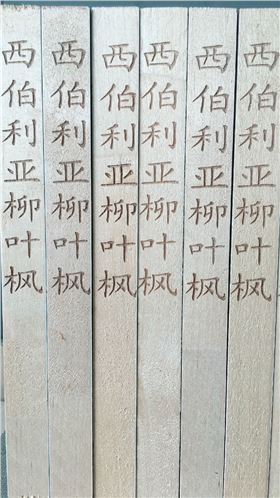 西伯利亚柳叶枫
西伯利亚柳叶枫
西伯利亚柳叶枫
西伯利亚柳叶枫
西伯利亚柳叶枫
西伯利亚柳叶枫